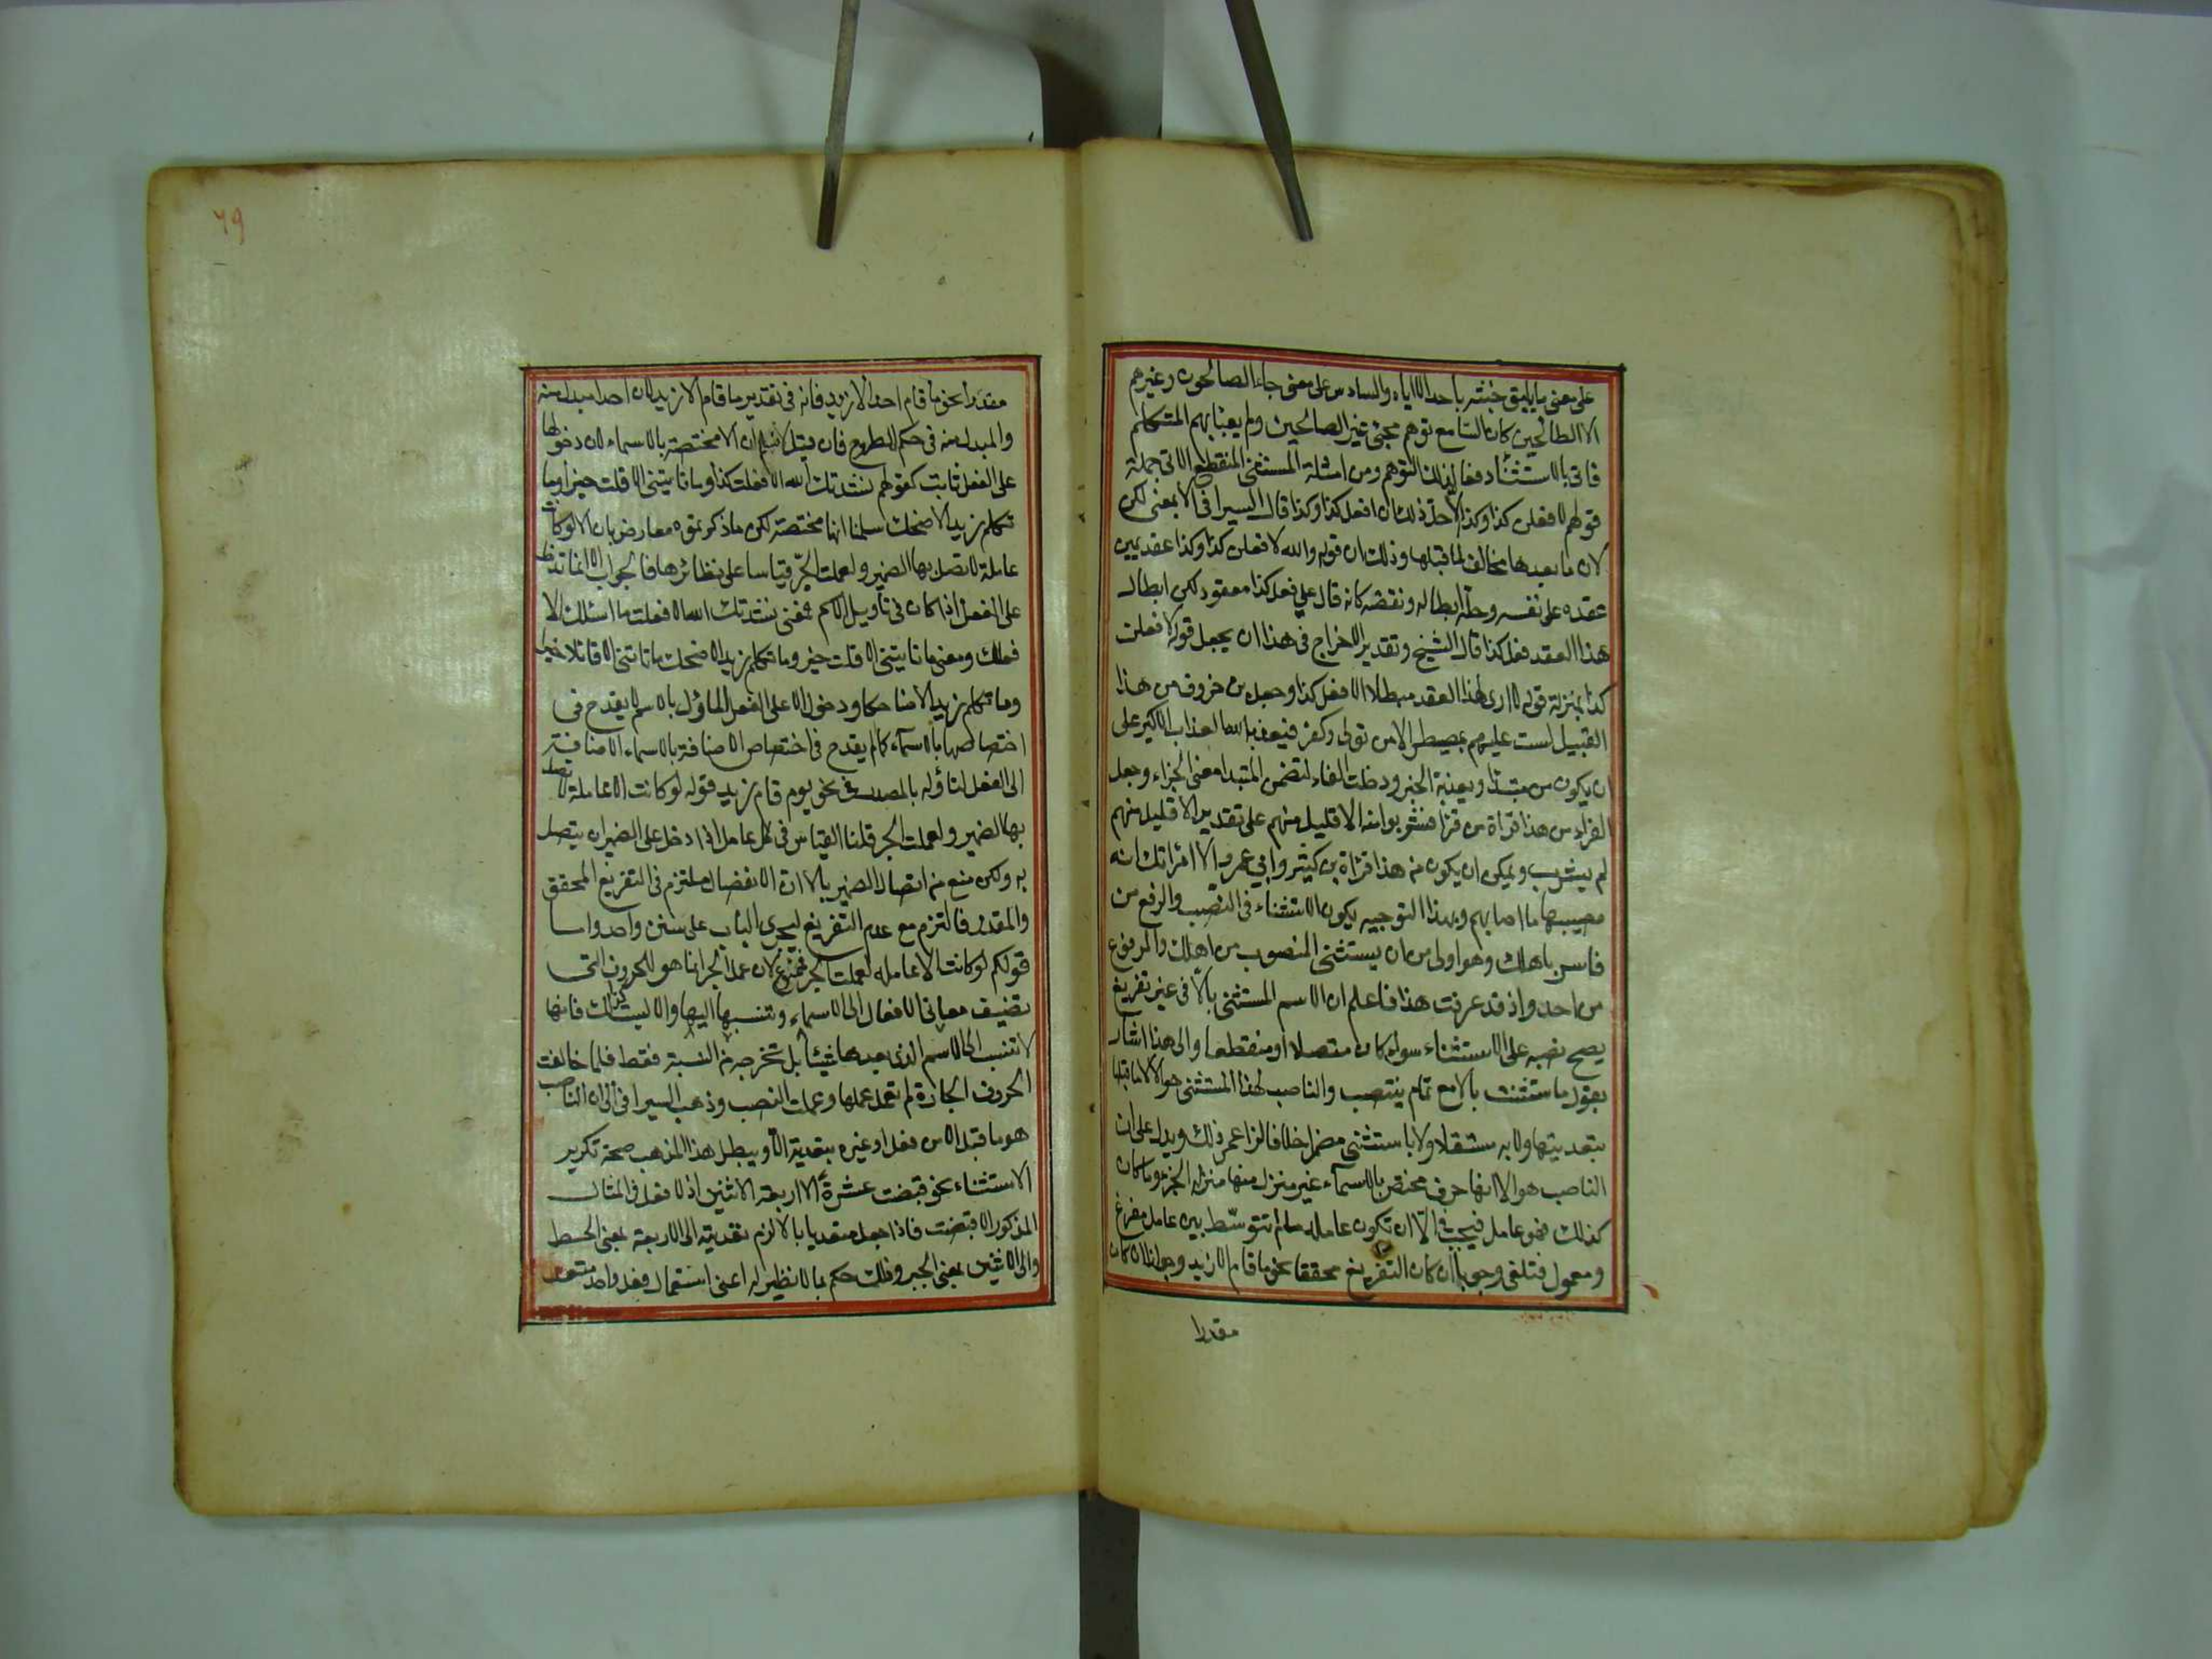 على معنى ما يليق خبثه باحد الا اياه والسادس على معنى جاء الصالحون وغيرهم
الا الطالحين كان السامع توهم مجئ غير الصالحين ولم يعبا بهم المتكلم
فاتى بالاستثناء دفعا لذلك التوهم ومن امثلة المستثنى المنقطع الاتى جملة
قولهم لافعلن كذا وكذا الا حل ذلك ان افعل كذا وكذا قال السيرافى الا بمعنى لكن
لان ما بعدها مخالف لما قبلها وذلك ان قوله والله لافعلن كذا وكذا عقد يمين
عقده على نفسه وحله ابطاله ونقضه كانه قال علي فعل كذا معقود لكن ابطال
هذا العقد فعل كذا قال الشيخ وتقدير الاخراج فى هذا ان يجعل قوله لافعلن
كذا بمنزلة قوله لا ارى لهذا العقد مبطلا الا فعل كذا وجعل بن خروف من هذا
القبيل لست عليهم بمصيطر الا من تولى وكفر فيعذبه الله العذاب الاكبر على
ان يكون من مبتدا ويعذبه الخبر ودخلت الفاء لتضمن المبتدا معنى الجزاء وجعل
الفراء من هذا قراة من قرا فشربوا منه الا قليل منهم على تقدير الا قليل منهم
لم يشرب ويمكن ان يكون من هذا قراة بن كثير وابي عمرو الا امراتك انه
مصيبها ما اصابهم وبهذا التوجيه يكون الاستثناء فى النصب والرفع من
فاسر باهلك وهو اولى من ان يستثنى المنصوب من اهلك والمرفوع
من احد واذ قد عرفت هذا فاعلم ان الاسم المستثنى بالا فى غير تفريغ
يصح نصبه على الاستثناء سواء كان متصلا او منقطعا والى هذا اشار
بقوله ما استثنت الا مع تمام ينتصب والناصب لهذا المستثنى هو الا لا ما قبلها
بتعديتها ولا به مستقلا ولا باستثنى مضمرا خلافا لزاعمى ذلك ويدل على ان
الناصب هو الا انها حرف مختص بالاسماء غير منزل منها منزلة الجزء وما كان
كذلك فهو عامل فيجب فى الا ان تكون عاملة ما لم تتوسط بين عامل مفرغ
ومعمول فتلغى وجوبا ان كان التفريغ محققا نحو ما قام الا زيد وجوازا ان كان
مقدرا
٦٩
مقدرا نحو ما قام احد الا زيد فانه فى تقدير ما قام الا زيد لان احد مبدل منه
والمبدل منه فى حكم المطروح فان قيل لا نسلم ان الا مختصة بالاسماء لان دخولها
على الفعل ثابت كقولهم نشدتك الله الا فعلت كذا وما تاتينى الا قلت خيرا وما
تكلم زيد الا ضحك سلمنا انها مختصة لكن ما ذكرتموه معارض بان الا لو كانت
عاملة لاتصل بها الضمير ولعملت الجر قياسا على نظائرها فالجواب ان الا انما تدخل
على الفعل اذا كان فى تاويل الاسم فمعنى نشدتك الله الا فعلت ما اسئلك الا
فعلك ومعنى ما تاتينى الا قلت خيرا وما تكلم زيد الا ضحك ما تاتينى الا قائلا خيرا
وما تكلم زيد الا ضاحكا ودخول الا على الفعل الماؤل بالاسم لا يقدح فى
اختصاصها بالاسماء كما لم يقدح فى اختصاص الاضافة بالاسماء الاضافة
الى الفعل لتاؤله بالمصدر فى نحو يوم قام زيد قوله لو كانت الا عاملة لاتصل
بها الضمير ولعملت الجر قلنا القياس فى كل عامل اذا دخل على الضمير ان يتصل
به ولكن منع من اتصال الضمير بالا ان الانفصال ملتزم فى التفريغ المحقق
والمقدر فالتزم مع عدم التفريغ ليجرى الباب على سنن واحد واما
قولكم لو كانت الا عاملة لعملت الجر فممنوع لان عمل الجر انما هو للحروف التى
تضيف معانى الافعال الى الاسماء وتنسبها اليها والا ليست كذلك فانها
لا تنسب الى الاسم الذى بعدها شيئا بل تخرجه من النسبة فقط فلما خالفت
الحروف الجارة لم تعمل عملها وعملت النصب وذهب السيرافى الى ان الناصب
هو ما قبل الا من فعل او غيره بتعدية الا ويبطل هذا المذهب صحة تكرير
الاستثناء نحو قبضت عشرة الا اربعة الا اثنين اذ لا فعل فى المثال
المذكور الا قبضت فاذا جعل متعديا بالا لزم تعديته الى الاربعة بمعنى الحط
والى الاثنين بمعنى الجبر وذلك حكم بما لا نظير له اعنى استعمال فعل واحد متعد